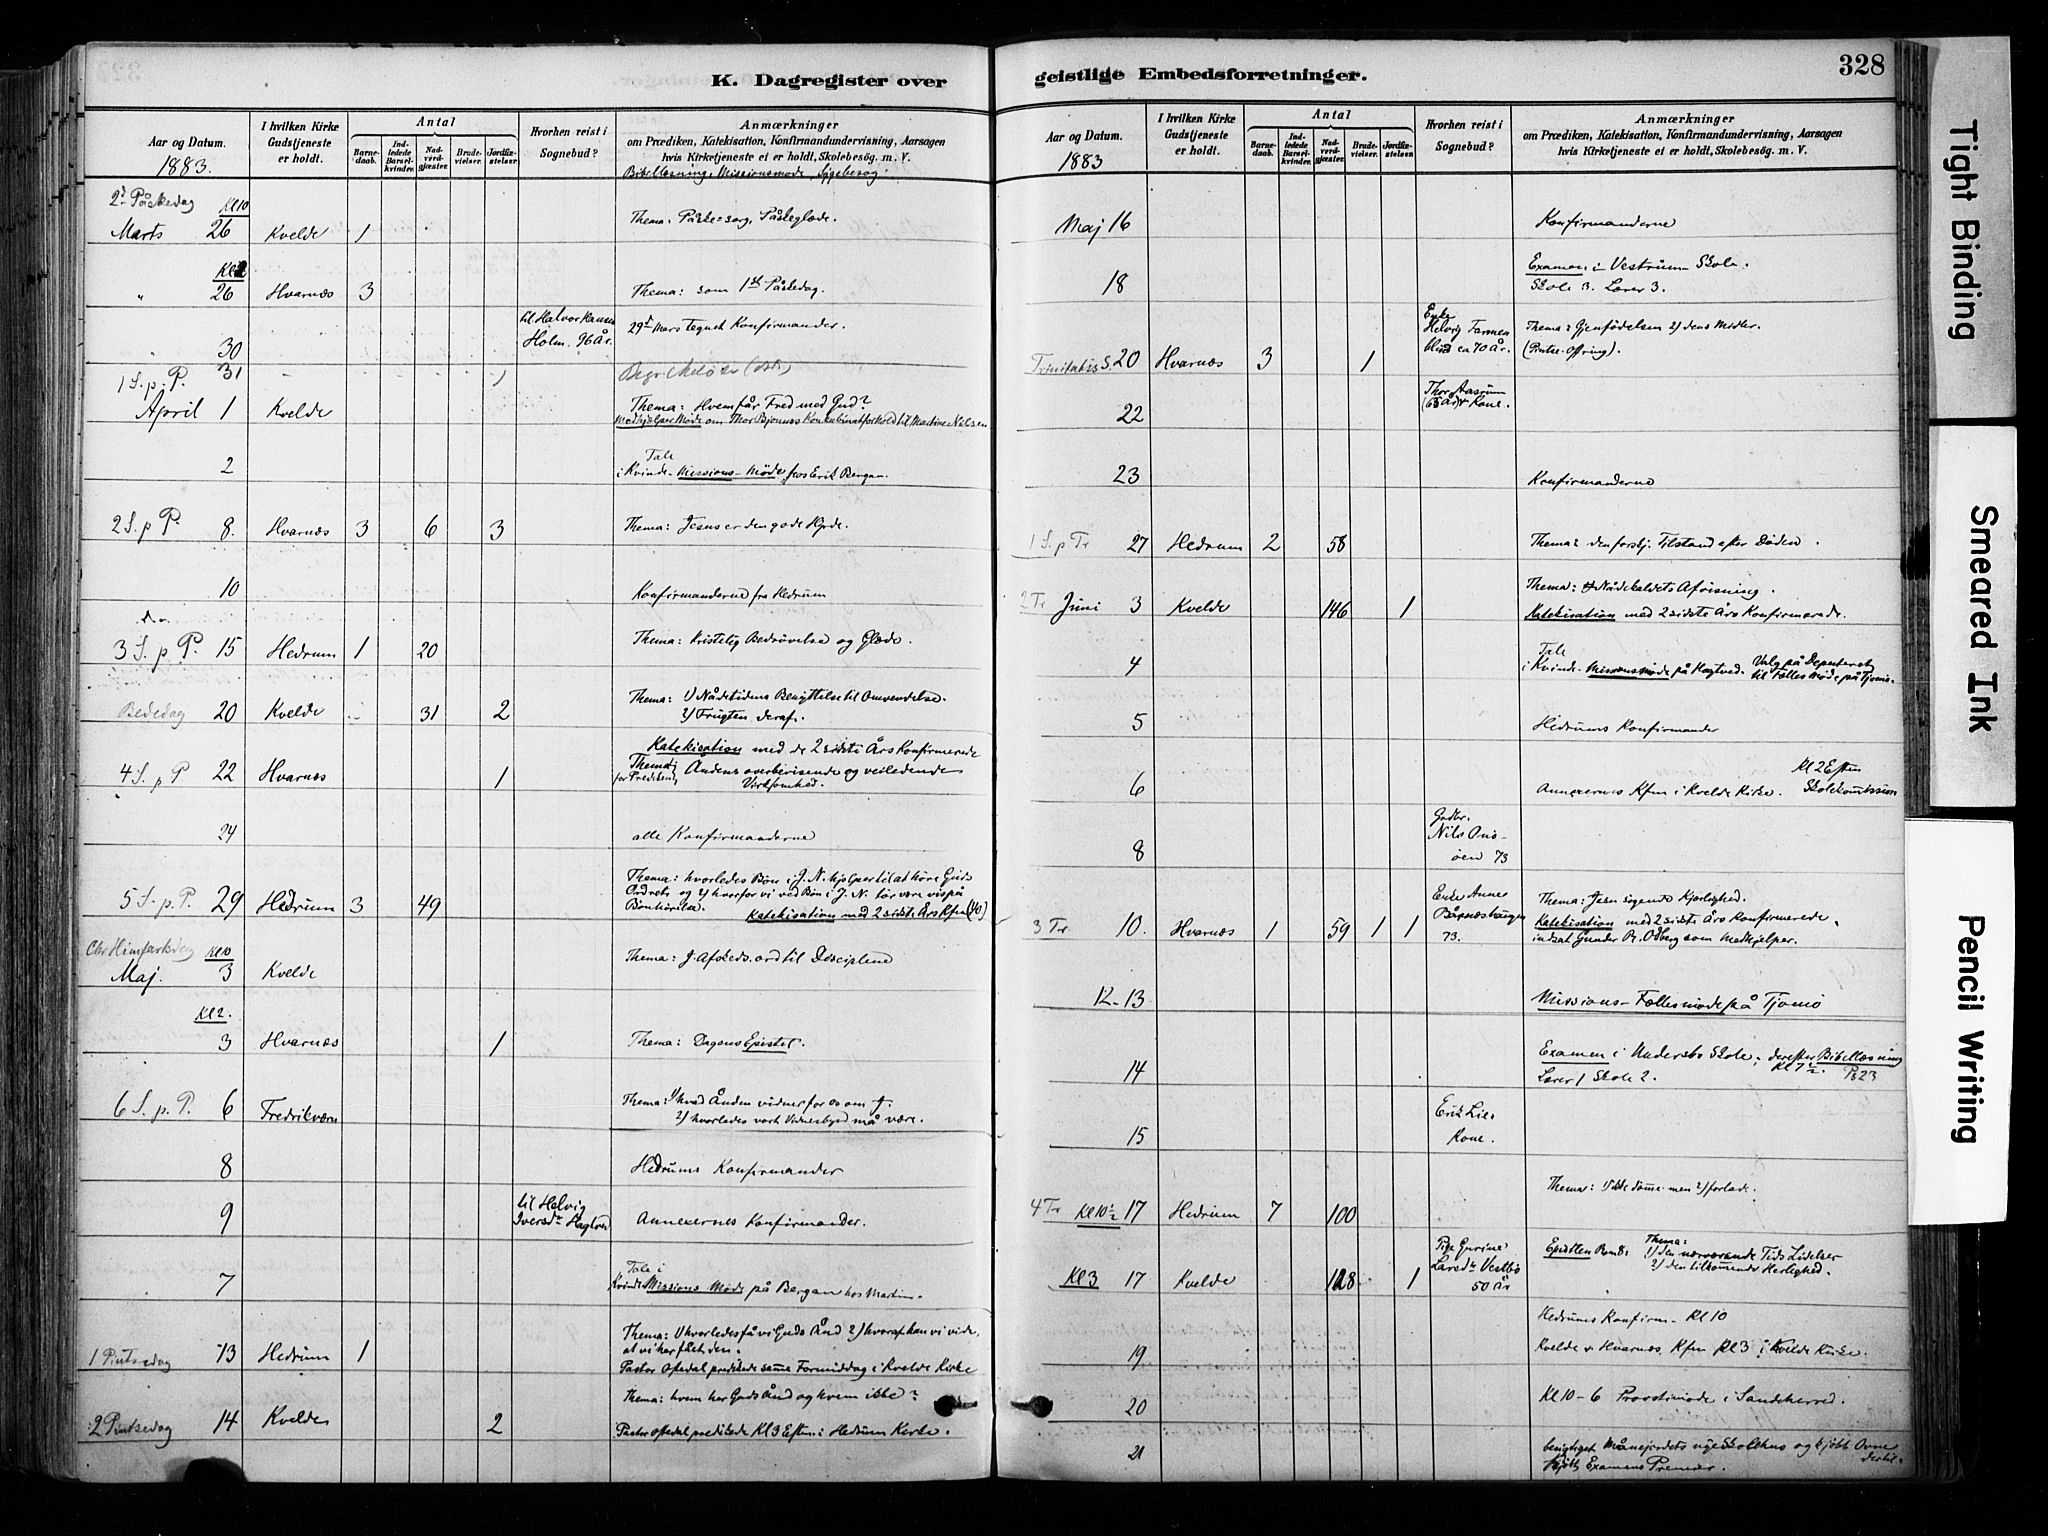 K. Dagregister over
geistlige Embedsforretninger.
328
Aar og Datum.
1883.
I hvilken Kirke Gudstjeneste er holdt.
Antal
Barnedaab.
Indledede Barselkvinder.
Nadverdgjæster.
Brudevielser.
Jordfæstelser.
Hvorhen reist i Sognebud?
Anmærkninger
om Prædiken, Katekisation, Konfirmandundervisning, Aarsagen
hvis Kirketjeneste ei er holdt, Skolebesøg. m. V.
Bibellæsning, Missionsmøde, Sygebesøg.
2d Påskedag Kl 10
Marts 26 Kvelde 1 Thema: Påske=sorg, Påskeglæde.
" 26 Hvarnæs 3 Thema: som 1ste Påskedag.
30 til Halvor Hansen Holm. 96 år. 29d Mars tegnet Konfirmander.
31 1
1 S. p. P.
April 1 Kvelde Thema: Hvem får Fred med Gud?
Medhjælper Møde om Thor Bjønnes Konkubinatforhold til Martine Nilsen
2 Tale
i Kvinde-Missions-Møde hos Erik Bergan.
2 S. p P. 8. Hvarnæs 3 6 3 Thema: Jesus er den gode Hyrde.
10 Konfirmanderne fra Hedrum
3 S. p P. 15 Hedrum 1 20 Thema: Kristelig Bedrøvelse og Glæde.
Bededag 20 Kvelde 31 2 Thema: 1/ Nådetidens Benyttelse til Omvendelse.
2/ Frugten deraf.
Katekisation med de 2 sidste Års Konfirmerede
4 S. p P 22 Hvarnæs 1 Thema for Prediken: Åndens overbevisende og veiledende
Virksomhed.
24 alle Konfirmanderne
5 S. p. P. 29 Hedrum 3 49 Thema: hvorledes Bøn i J. N. hjelper til at høre Guds
Ordrets og 2/ hvorfor vi ved Bøn i J. N. tør være vis på
Bønhørelse. Katekisation med 2 sidste Års Kfm (40)
Chr Himfartsdag Kl 10
Maj. 3 Kvelde Thema: J. Afskeds.ord til Disciplene
Kl 2.
3 Hvarnæs 1 Thema: Dagens Epistel.
6 S. p. P. 6 Fredriksværn Thema: 1/ hvad Ånden vidner for os om J.
2/ hvorledes vort Vidnesbyrd må være.
8 Hedrums Konfirmander
9 til Helvig Iversdr Hagtved Annexernes Konfirmander.
7 Tale i
Kvinde Missions Møde på Bergan hos Martin.
1 Pintsedag 13 Hedrum 1 Thema: 1/ hvorledes få vi Guds Ånd 2/ hvoraf kan vi vide,
at vi har fået den.
Pastor Oftedal predikede samme Formiddag i Kvelde Kirke
Thema: hvem har Guds Ånd og hvem ikke?
2 Pintsedag 14 Kvelde 2 Pastor Oftedal predikede Kl 3 Eftm i Hedrum Kirke.
Aar og Datum.
1883
I hvilken Kirke Gudstjeneste er holdt.
Antal
Barnedaab.
Indledede Barselkvinder.
Nadverdgjæster.
Brudevielser.
Jordfæstelser.
Hvorhen reist i Sognebud?
Anmærkninger
om Prædiken, Katekisation, Konfirmandundervisning, Aarsagen
hvis Kirketjeneste ei er holdt, Skolebesøg. m. V.
Maj 16 Konfirmanderne
18 Examen i Vestrum Skole.
Skole 3. Lærer 3.
Trinitatis S. 20 Hvarnæs 3 1 Enke Helvig Farmen blind ca 70 år. Thema: Gjenfødelsen 2/ dens Midler.
(Pintse-Offring).
22 Thor Aasrum (65 År) & Kone.
23 Konfirmanderne
1 S. p Tr 27 Hedrum 2 58 Thema: den forskj. Tilstand efter Døden.
2 Tr Juni 3 Kvelde 146 1 Thema: Nådekaldets Afvisning.
Katekisation med 2 sidste års Konfirmerede.
4 Tale
i Kvinde-Missionsmøde på Hagtved. Valg på Deputeret
til Fælles Møde på Tjømø.
5 Hedrums Konfirmander
6 Annexernes Kfm i Kvelde Kirke. Kl 2 Eftm
Skolekommission
8 Nils Onsøen 73
3 Tr 10. Hvarnæs 1 59 1 1 Enke Anne Bårnæshaugen 73. Thema: Jesu søgende Kjærlighed.
Katekisation med 2 sidste Års Konfirmerede
indsat Gunder R. Odberg som Medhjelper.
12-13 Missions-Fællesmøde på Tjømø
14 Examen i Undersbo Skole; derefter Bibellæsning
Lærer 1 Skole 2. Kl 7½. Ps 23
15 Erik Lies Kone.
4 Tr Kl 10½ 17 Hedrum 7 100 Thema: 1/ ikke dømme men 2/ forlade.
Kl 3 17 Kvelde 128 1 Pige Gurine Larsdr Vestbø 50 år Epistlen Rom 8: Thema:
1/ den nærværende Tids Lidelser
2/ den tilkommende Herlighed.
Hedrums Konfirm- Kl 10
19 Kvelde & Hvarnæs Kfm Kl 3 i Kvelde Kirke.
20 Kl 10-6 Provstimøde i Sandeherred.
21 besigtiget Månejordets nye Skolehus og kjøbt Ovne
dertil.
kjøbt Examens Præmier.
Tight Binding
Smeared Ink
Pencil Writing